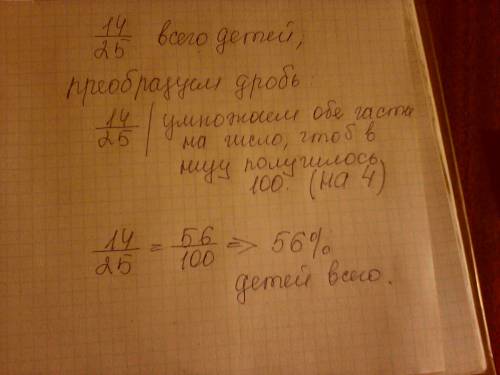 14/25 всего детей,
преобразуем дробь:
14/25 | умножаем обе части
на число, чтоб в
низу получилось
100. (на 4)
14/25 = 56/100 => 56%
детей всего.